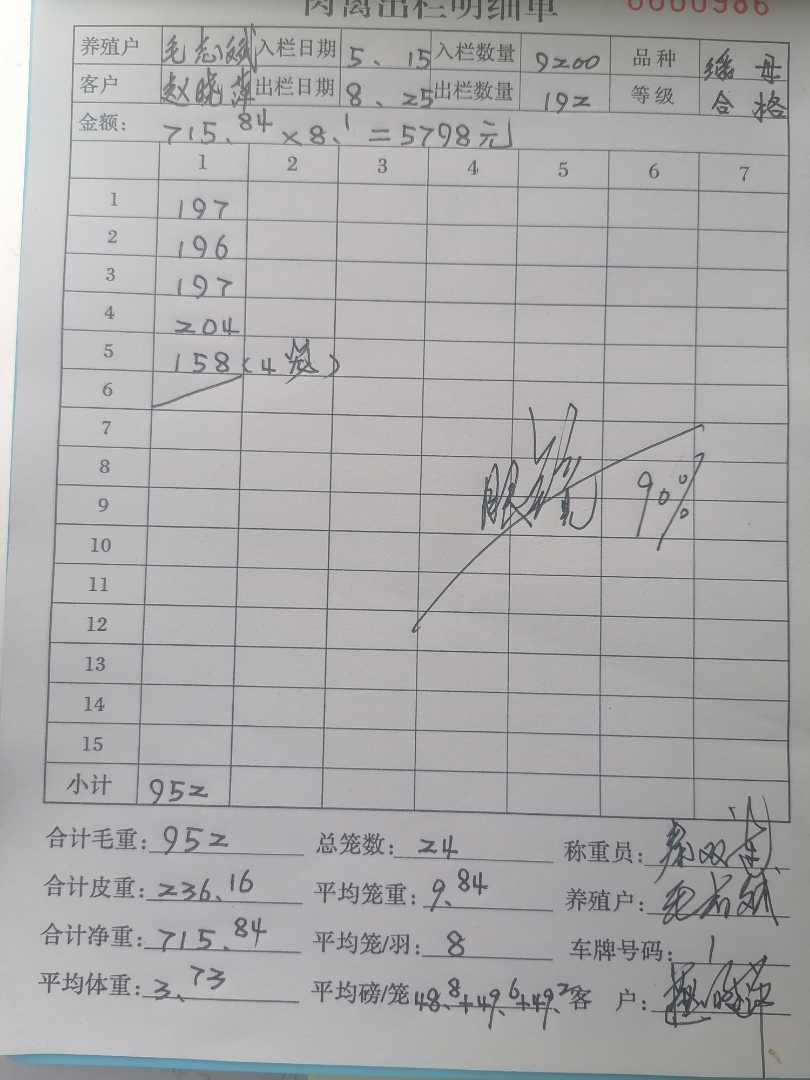 肉禽出栏明细单 0000986
养殖户 毛志斌 入栏日期 5、15 入栏数量 9200 品种
客户 赵晓萍 出栏日期 8、25 出栏数量 192 等级 合格
金额: 715.84×8.1=5798元
1 2 3 4 5 6 7
1 197
2 196
3 197
4 204
5 158(4笼)
6
7
8
9 90%
10
11
12
13
14
15
小计 952
合计毛重: 952 总笼数: 24 称重员:
合计皮重: 236.16 平均笼重: 9.84 养殖户: 毛志斌
合计净重: 715.84 平均笼/羽: 8 车牌号码: 1
平均体重: 3.73 平均磅/笼 48.8+49.6+49.2 客 户: